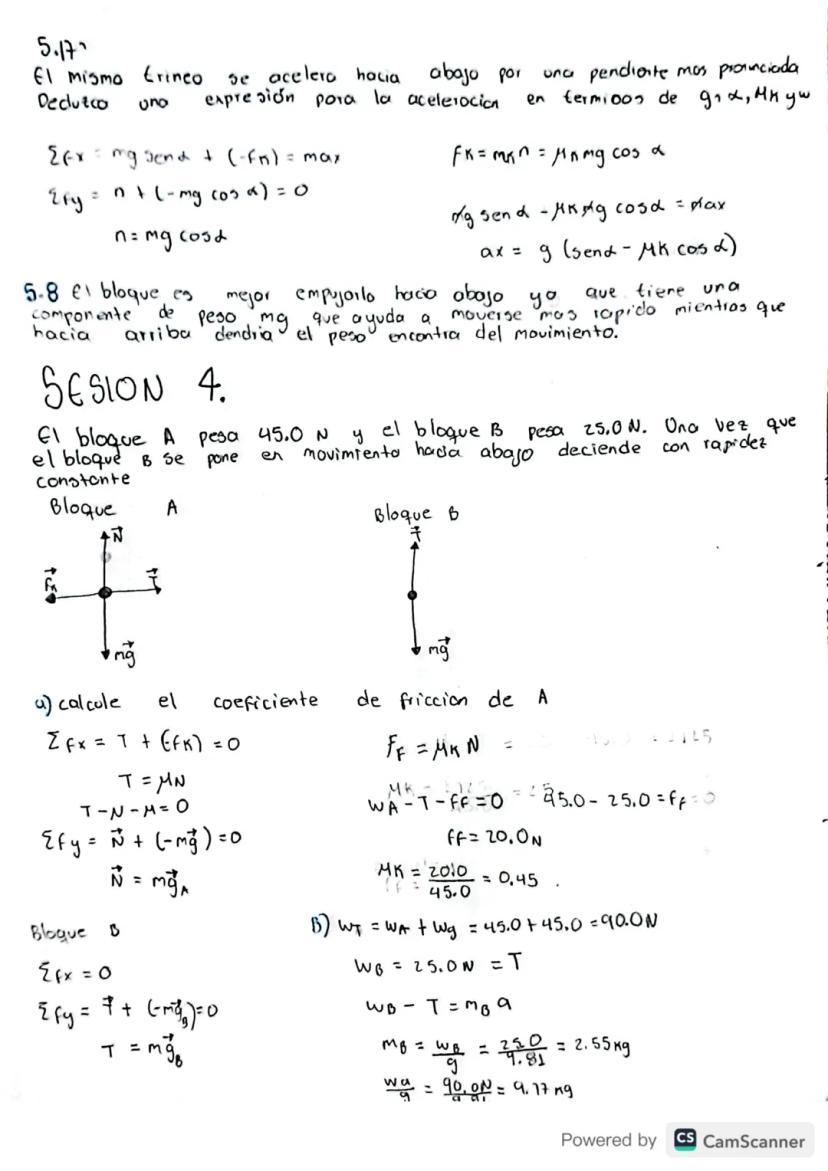 5.17
El mismo trineo se acelera hacia abajo por una pendiente mas pronunciada
Deduzco una expresión para la aceleracion en termioos de g, α, μk y w
Σfx = mg send + (-fk) = max
fk = mkn = μkmg cos α
Σfy = n + (-mg cos α) = 0
mg send - μkmg cosα = max
n = mg cosα
ax = g (send - μk cosα)
5.8 El bloque es mejor empujarlo hacia abajo ya que tiene una
componente de peso mg que ayuda a moverse mas rapido mientras que
hacia arriba dendria el peso encontra del movimiento.
SESION 4.
El bloque A pesa 45.0 N y el bloque B pesa 25.0 N. Una vez que
el bloque B se pone en movimiento hacia abajo deciende con rapidez
constante
Bloque A
Bloque B
N
T
fk
T
mg
mg
a) calcule el coeficiente de friccion de A
Σfx = T + (-fk) = 0
Ff = μk N =
T = μN
T-N-M=0
WA-T-ff=0
45.0 - 25.0 = ff
Σfy = N + (-mg) = 0
ff = 20.0N
N = mgA
μk = 20.0/45.0 = 0.45
Bloque B
B) WT = WA + Wg = 45.0 + 45.0 = 90.0N
Σfx = 0
WB = 25.0 N = T
Σfy = T + (-mgB) = 0
WB - T = mB a
T = mgB
mB = WB/g = 25.0/9.81 = 2.55 kg
Wa/g = 90.0N/9.81 = 9.17 kg
Powered by CS CamScanner